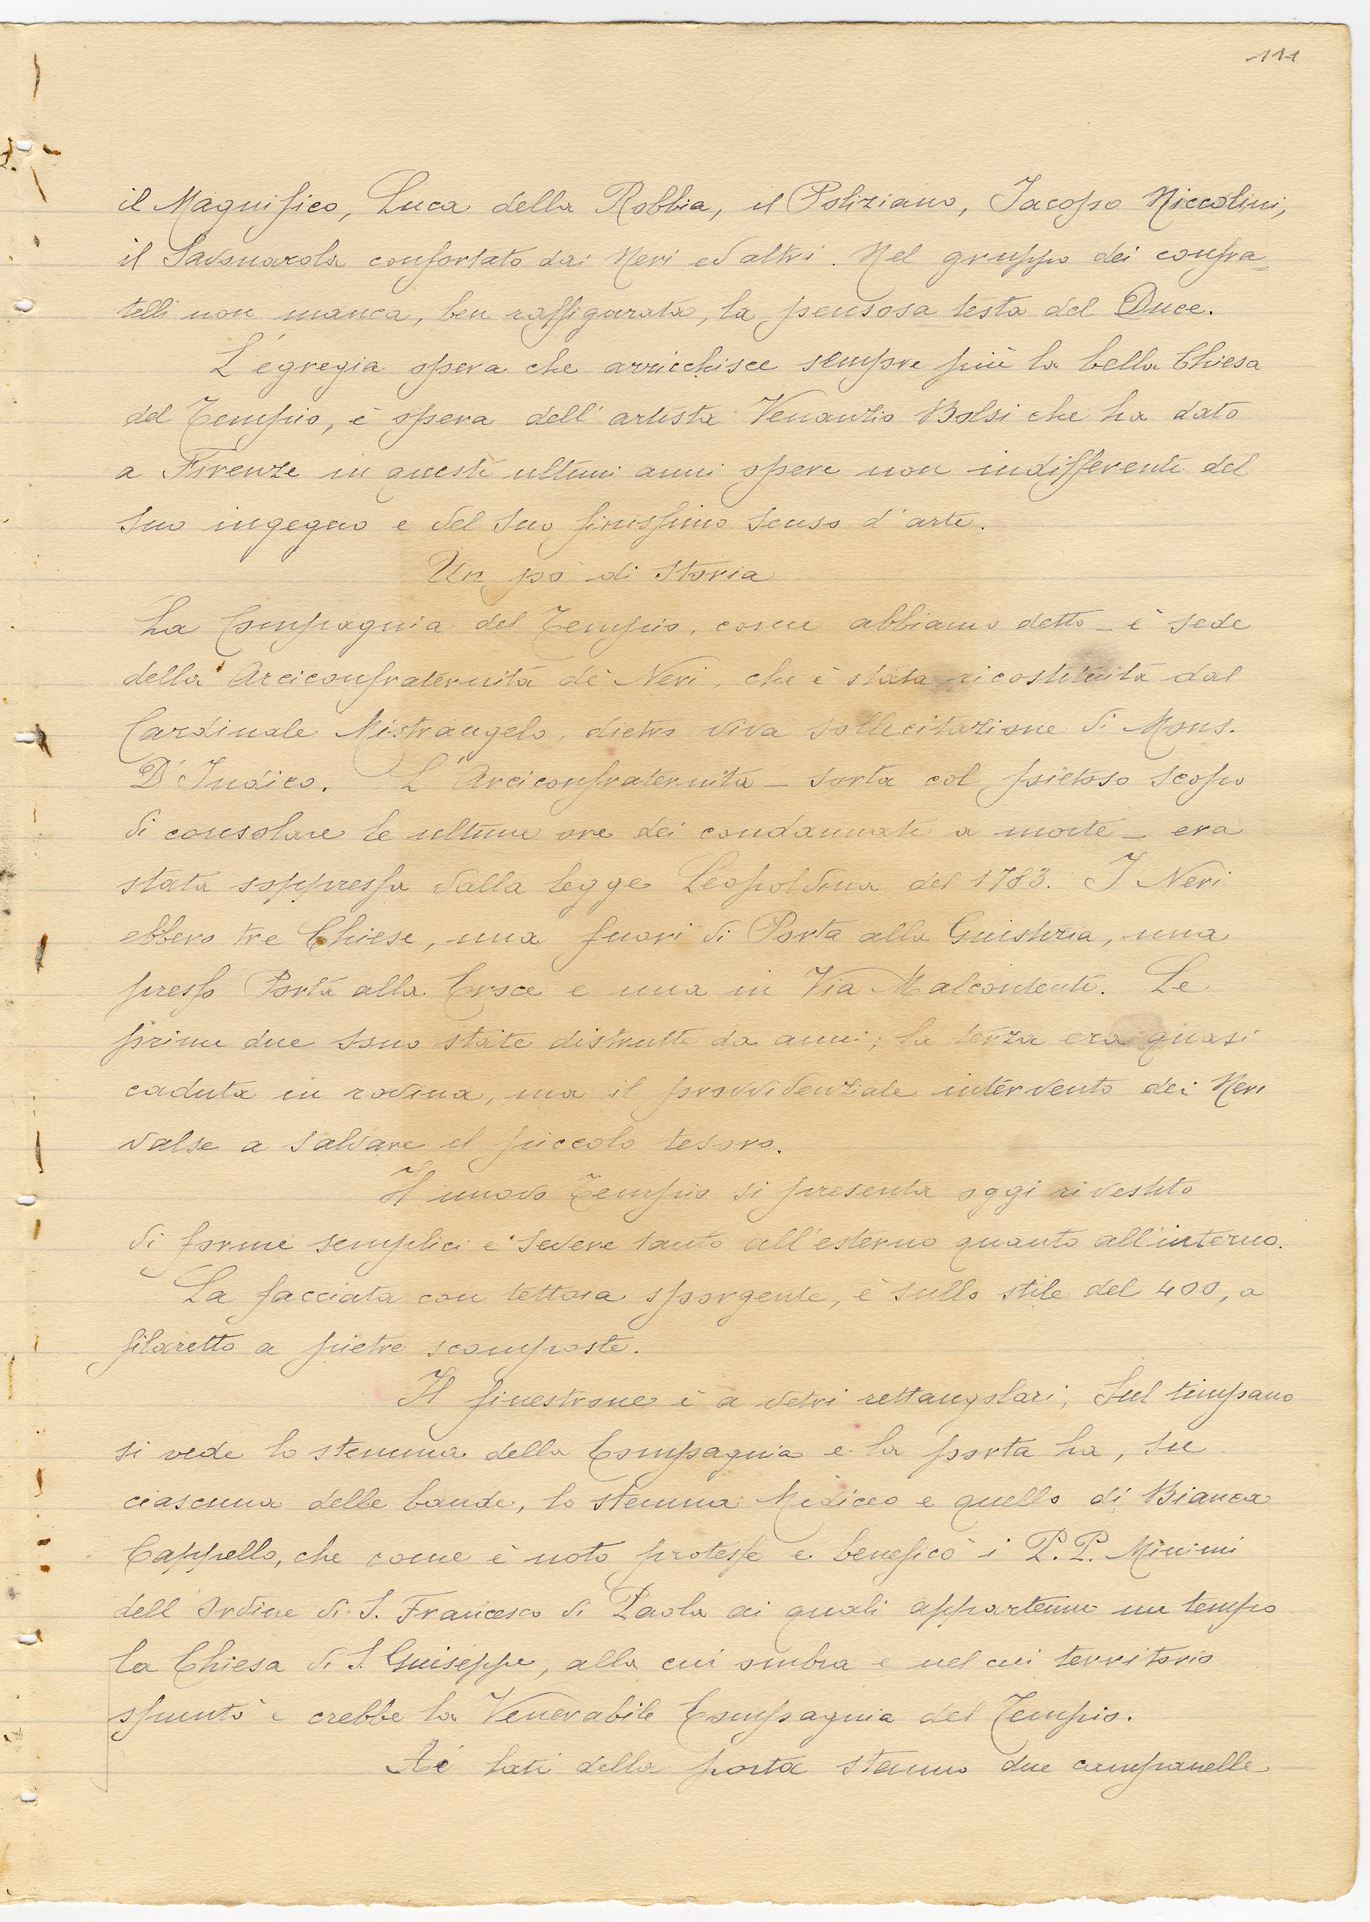 111
il Magnifico, Luca della Robbia, il Poliziano, Jacopo Niccolini,
il Savonarola confortato dai Neri ed altri. Nel gruppo dei confra=
telli non manca, ben raffigurata, la pensosa testa del Duce.
L'egregia opera che arricchisce sempre più la bella Chiesa
del Tempio, è opera dell'artista Venanzio Bolsi che ha dato
a Firenze in questi ultimi anni opere non indifferenti del
suo ingegno e del suo finissimo senso d'arte.
Un pò di storia
La Compagnia del Tempio, come abbiamo detto - è sede
della Arciconfraternita dè Neri, che è stata ricostituita dal
Cardinale Mistrangelo, dietro viva sollecitazione di Mons.
D'Indico. L'Arciconfraternita - sorta col pietoso scopo
di consolare le ultime ore dei condannati a morte - era
stata soppressa dalla legge Leopoldina del 1783. I Neri
ebbero tre Chiese, una fuori di Porta alla Giustizia, una
presso Porta alla Croce e una in Via Malcontenti. Le
prime due sono state distrutte da anni; la terza era quasi
caduta in rovina, ma il provvidenziale intervento dei Neri
valse a salvare il piccolo tesoro.
Il nuovo Tempio si presenta oggi rivestito
di forme semplici e severe tanto all'esterno quanto all'interno.
La facciata con tettoia sporgente, è sullo stile del 400, a
filaretto a pietre scomposte.
Il finestrone è a vetri rettangolari, sul timpano
si vede lo stemma della Compagnia e la porta ha, su
ciascuna delle bande, lo stemma Mediceo e quello di Bianca
Cappello, che come è noto protesse e beneficò i P.P. Minimi
dell'Ordine di S. Francesco di Paola ai quali appartenne un tempo
la Chiesa di S. Giuseppe, alla cui ombra e nel cui territorio
spuntò e crebbe la Venerabile Compagnia del Tempio.
Ai lati della porta stanno due campanelle